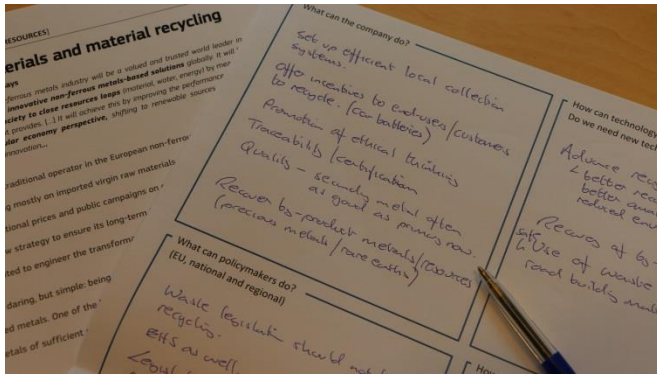 RESOURCES)
erials and material recycling
ays
-ferrous metals industry will be a valued and trusted world leader in
innovative non-ferrous metals-based solutions globally. It will
ciety to close resources loops (material, water, energy) by
t provides. [...] It will achieve this by improving the performance
ular economy perspective, shifting to renewable sources
innovation...
traditional operator in the European non-ferro
g mostly on imported virgin raw materials
tional prices and public campaigns on
w strategy to ensure its long-term
ted to engineer the transform
daring, but simple: being
ed metals. One of the
etals of sufficient
What can the company do?
Set up efficient local collection
systems.
Offer incentives to endusers/customers
to recycle. (car batteries)
Promotion of ethical thinking
Traceability/certification
Quality – secondary metal often
as good as primary now.
Recover by-product metals/resources
(precious metals/rare earths)
What can policymakers do?
(EU, national and regional)
Waste legislation should not
recycling.
as well.
How can technology
Do we need new tech
Advance recy
better
better
reduced env
Recovery of by-
Use of waste
road building
How